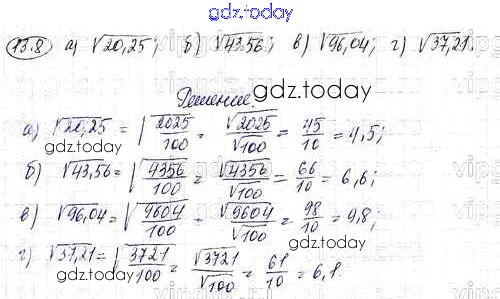 gdz.today
13.8 а) √20,25; б) √43,56; в) √96,04; г) √37,21.
gdz.today
Решение
а) √20,25 = √2025/100 = √2025/√100 = 45/10 = 4,5;
gdz.today
б) √43,56 = √4356/100 = √4356/√100 = 66/10 = 6,6;
в) √96,04 = √9604/100 = √9604/√100 = 98/10 = 9,8;
gdz.today
г) √37,21 = √3721/100 = √3721/√100 = 61/10 = 6,1.
gdz.today